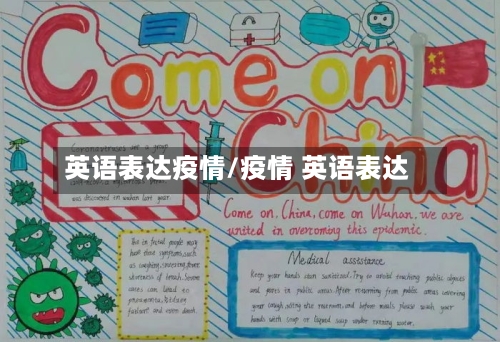 Come on
China
英语表达疫情/疫情 英语表达
Coronaviruses are a group
was discovered in wuhan last year.
Come on, China, come on Wuhan, we are
united in overcoming this epidemic.
people may
have these symptoms, such
as coughing, sneezing, fever,
shortness of breath. Severe
cases can lead to
pneumonia, kidney
failure and even death.
Medical assistance
Keep your hands clean sanitized. Try to avoid touching public objects
and parts in public areas. After returning from public areas covering
your cough, using the restroom, and before meals please wash your
hands with soap or liquid soap under running water.